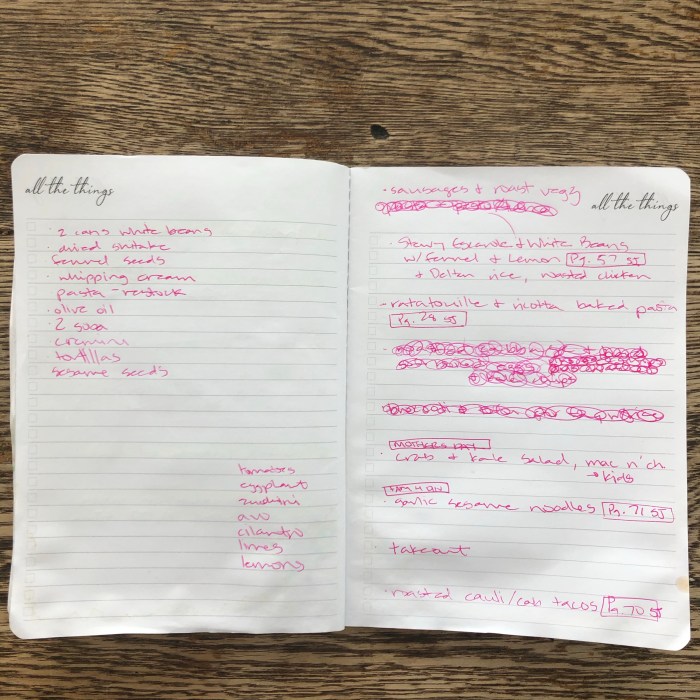 all the things
· 2 cans white beans
· dried shitake
fennel seeds
· whipping cream
pasta - restock
olive oil
· 2 soba
tortillas
sesame seeds
tomatoes
eggplant
zucchini
avo
cilantro
limes
lemons
· sausages + roast vegg
all the things
· Stewy Escarole + White Beans
w/ Fennel & Lemon Pg. 57 SJ
+ Delta rice, roasted chicken
- ratatouille + ricotta baked pasta
Pg. 28 SJ
MOTHERS DAY
· crab + kale salad, mac n' ch
→ kids
· garlic sesame noodles Pg. 71 SJ
· takeout
· roasted cauli/cab tacos Pg. 70 SJ